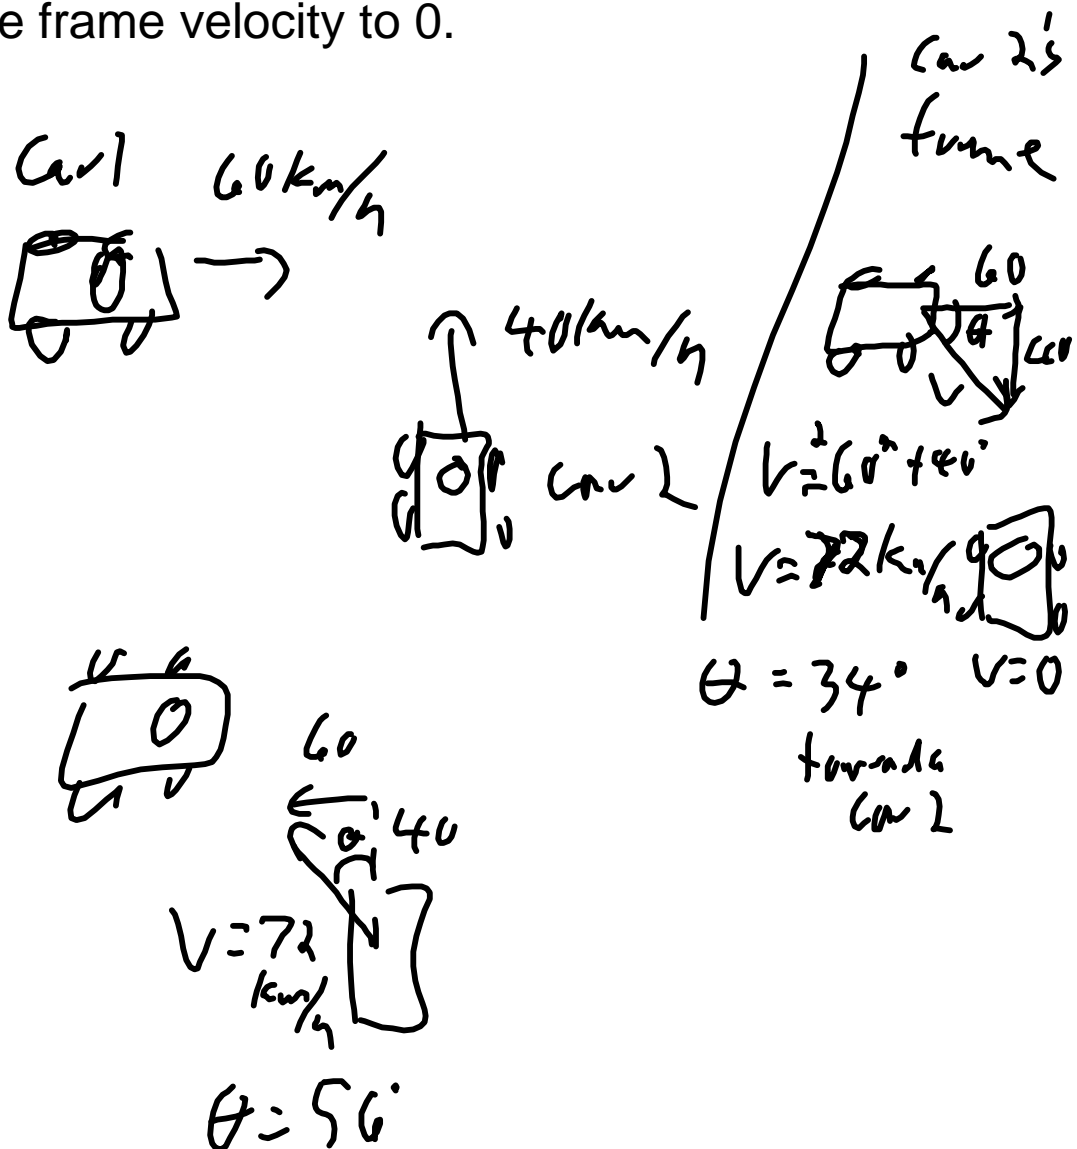 e frame velocity to 0.
Car 1
60 km/h
40 km/h
car 2
Car 2's
frame
60
θ
40
V
V²=60²+40²
V=72 km/h
V=0
θ = 34°
towards
car 2
60
θ
40
V=72
km/h
θ=56°